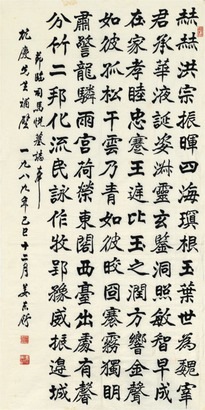 赫赫洪宗振暉四海瓊根玉葉世為魏宰
君承華誕姿淋靈玄鑒洞照敏智早成
在家孝睦忠蹇王庭比玉之潤方響金聲
如彼孤松干雲乃青如囧褰霧獨明
肅警龍驎雨宮荷榮東閤西臺出處有馨
分竹二邦化流民詠作牧郢豫威振邊城
節臨司馬悅墓誌
慶先生補壁一九八九年己巳十二月姜東舒